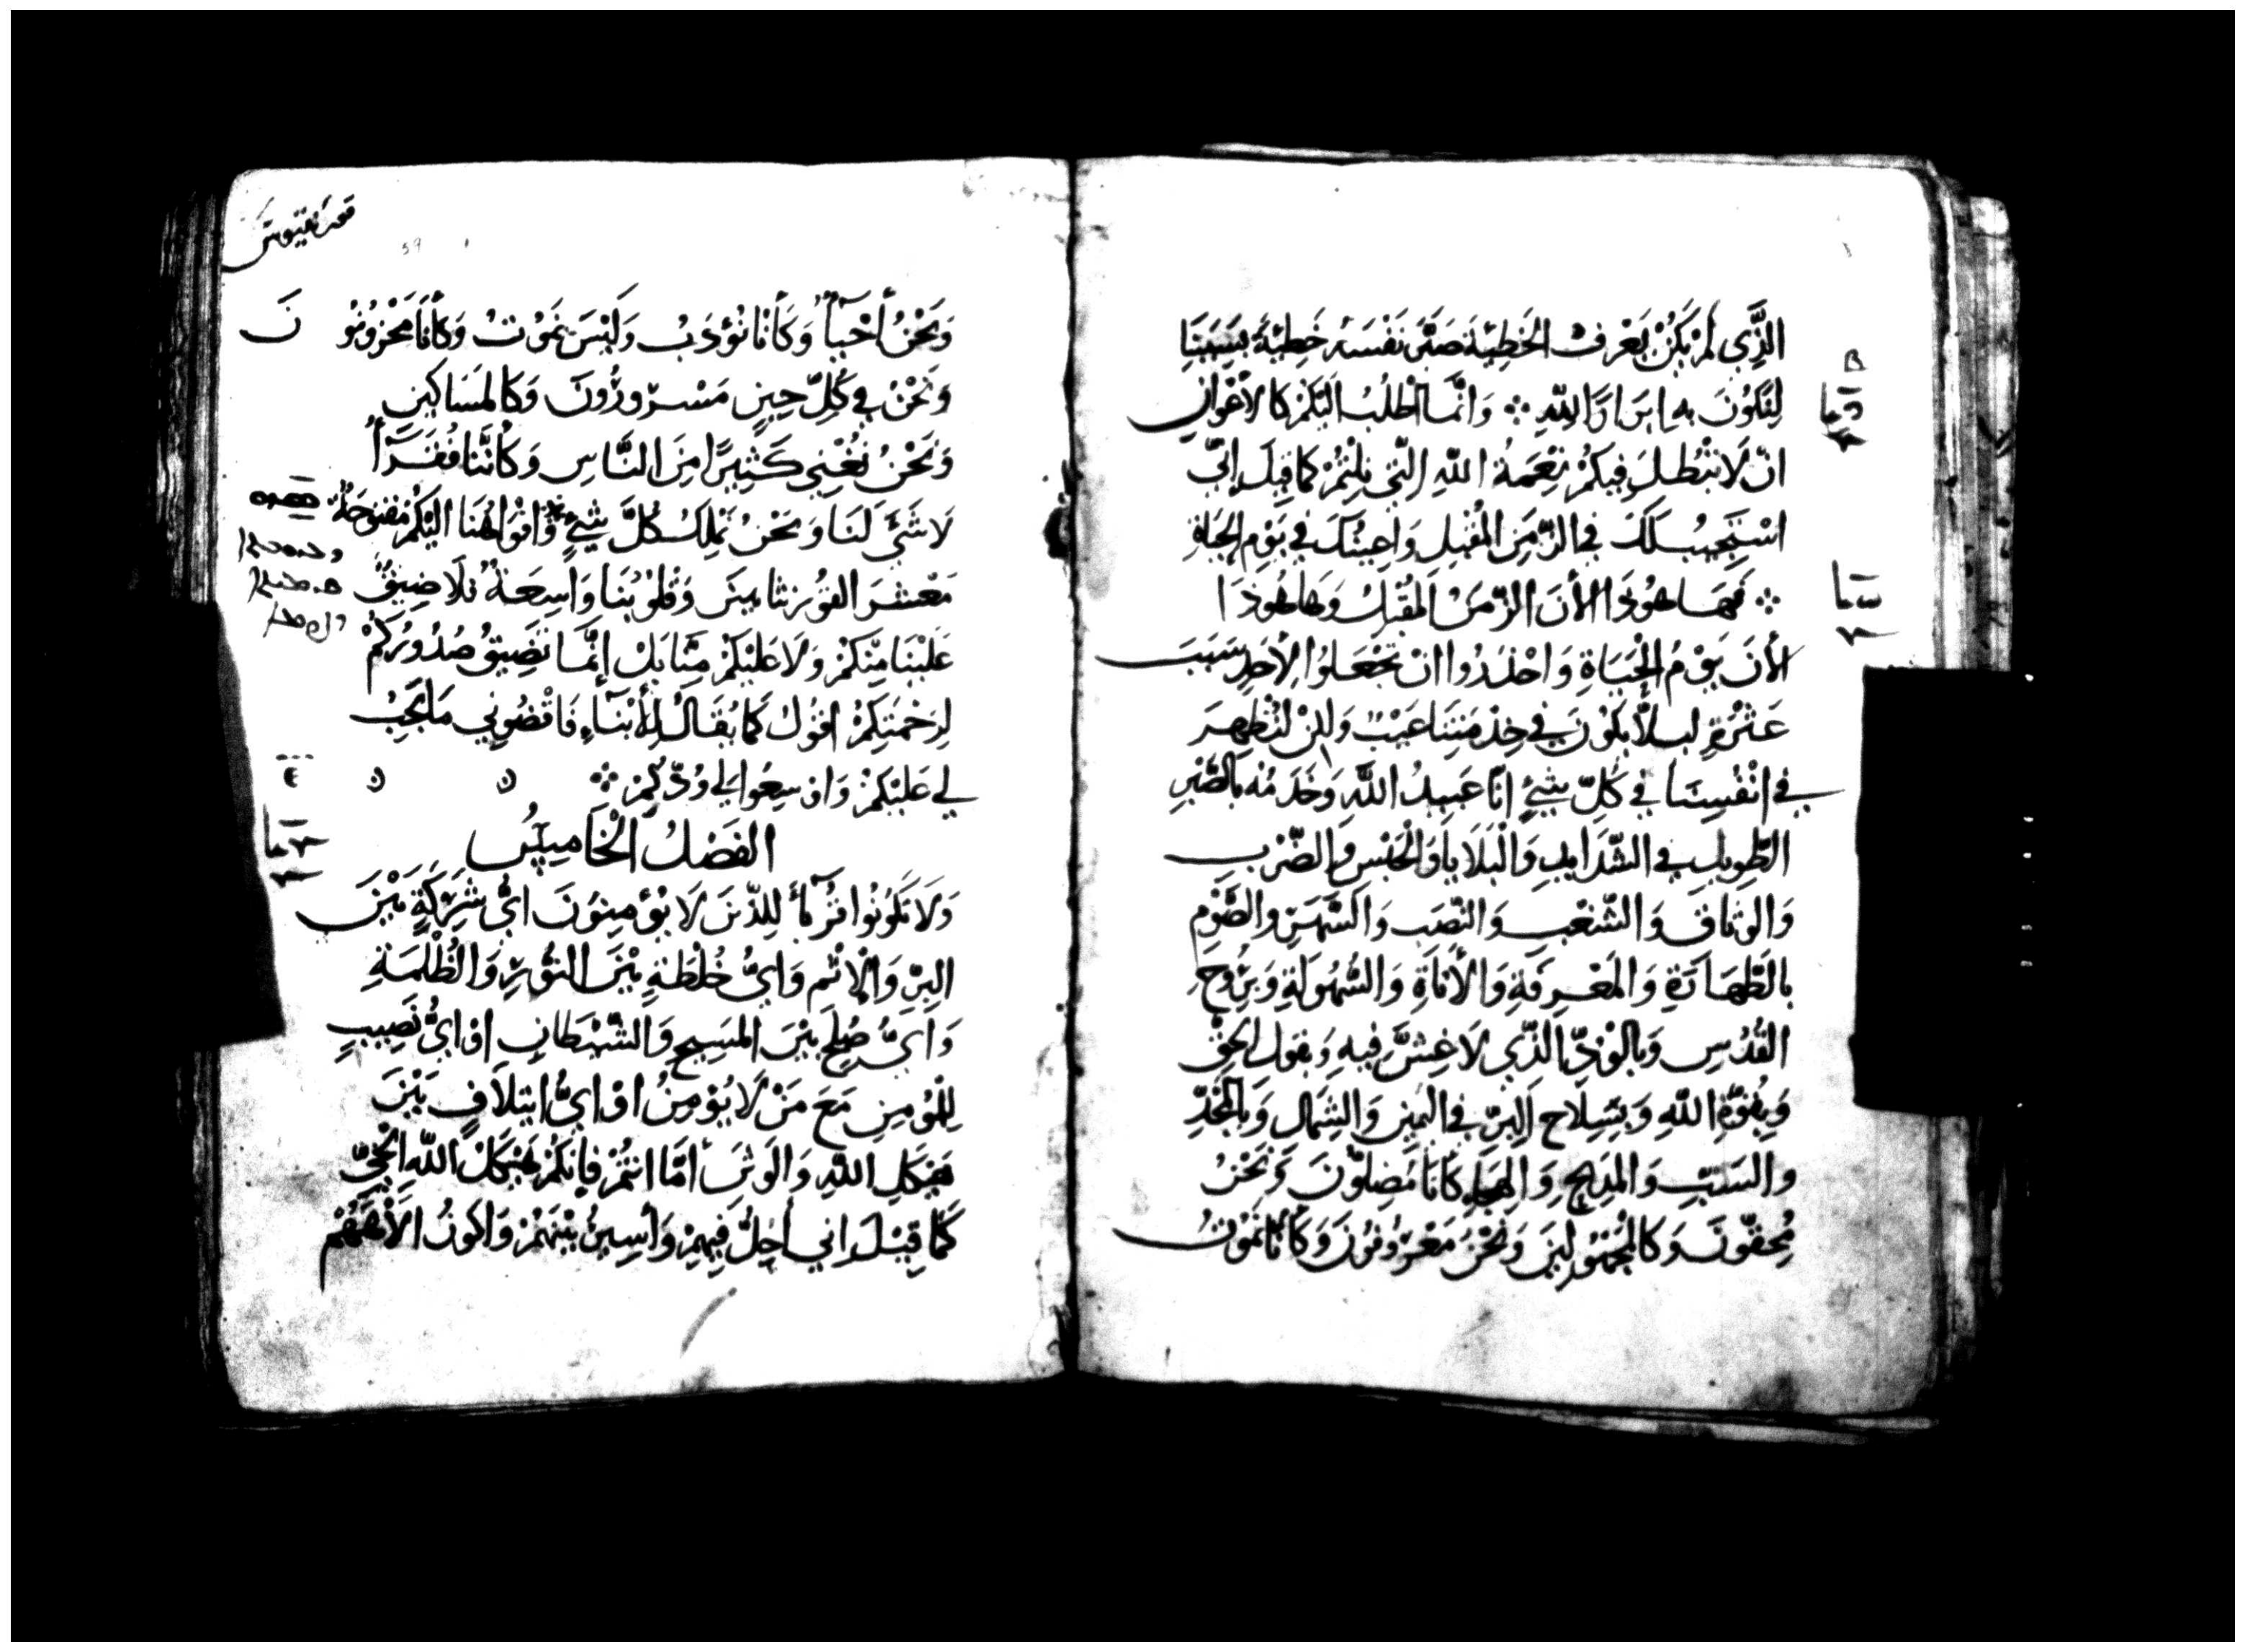 الَّذِي لَمْ يَكُنْ يَعْرِفُ الخَطِيَّةَ صَيَّرَ نَفْسَهُ خَطِيَّةً بِسَبَبِنَا
لِنَكُونَ بِهِ ابرَارًا لِلَّهِ ܀ وَانَّمَا نَطْلُبُ الَيْكُمْ كَالأَعْوَانِ
انْ لَا تَبْطُلَ فِيكُمْ نِعْمَةُ اللَّهِ الَّتِي نِلْتُمْ كَمَا قِيلَ إِنِّي
اسْتَجِيبُ لَكَ فِي الزَّمَنِ المُقْبِلِ وَاعِينُكَ فِي يَوْمِ الحَيَاةِ
܀ فَهَا هُوَذَا الأَنَ الزَّمَنُ المُقْبِلُ وَهَا هُوذَا
الأَنَ يَوْمُ الحَيَاةِ وَاحْذَرُوا انْ تَجْعَلُوا لِأَحَدٍ سَبَبَ
عَثْرَةٍ لِيَلَّا يَكُونَ فِي خِدْمَتِنَا عَيْبٌ وَلكِنْ لِنُظْهِرَ
فِي انْفُسِنَا فِي كُلِّ شَيْءٍ انَّا عَبِيدُ اللَّهِ وَخَدَمُهُ بِالصَّبْرِ
الطَّوِيلِ فِي الشَّدَايِدِ وَالْبَلَايَا وَالْحَبْسِ وَالضَّرْبِ
وَالوَثَاقِ وَالشَّغْبِ وَالنَّصَبِ وَالسَّهَرِ وَالصَّوْمِ
بِالطَّهَارَةِ وَالمَعْرِفَةِ وَالأَنَاةِ وَالسُّهُولَةِ وَبِرُوحِ
القُدُسِ وَبِالوُدِّ الَّذِي لَا غِشَّ فِيهِ وَبِقَولِ الحَقِّ
وَبِقُوَّةِ اللَّهِ وَبِسِلَاحِ البِرِّ فِي اليَمِينِ وَالشِّمَالِ وَبِالمَجْدِ
وَالسَّبِّ وَالمَدِيحِ وَالهِجَاءِ كَانَّا مُضِلُّونَ وَنَحْنُ
مُحِقُّونَ وَكَالمَجْهُولِينَ وَنَحْنُ مَعْرُوفُونَ وَكَأَنَّا نَمُوتُ
وَنَحْنُ أَحْيَاءٌ وَكَأَنَّا نُؤَدَبُ وَلَيْسَ نَمُوتُ وَكَأَنَّا مَحْزُونُو نَ
وَنَحْنُ فِي كُلِّ حِينٍ مَسْرُورُونَ وَكَالمَسَاكِينِ
وَنَحْنُ نُغْنِي كَثِيرًا مِنَ النَّاسِ وَكَأَنَّنَا فُقَرَاءُ
لَا شَيْءَ لَنَا وَنَحْنُ نَمْلِكُ كُلَّ شَيْءٍ وَافْوَاهُنَا الَيْكُمْ مَفْتُوحَةٌ
مَعْشَرَ القُورِنْثَانِيِّينَ وَقُلُوبُنَا وَاسِعَةٌ بِلَا ضِيقٍ
عَلَيْنَا مِنْكُمْ وَلَا عَلَيْكُمْ مِنَّا بَلْ إِنَّمَا تَضِيقُ صُدُورُكُمْ
لِرَحْمَتِكُمْ اقُولُ كَمَا يُقَالُ لِلْأَبْنَاءِ فَاقْضُونِي مَا يَجِبُ
لِي عَلَيْكُمْ وَاوْسِعُوا لِي وُدَّكُمْ ܀
الفَصْلُ الْخَامِسُ
وَلَا تَكُونُوا قُرَنَاءَ لِلَّذِينَ لَا يُؤْمِنُونَ ايُّ شِرْكَةٍ بَيْنَ
البِرِّ وَالْإِثْمِ وَايُّ خُلْطَةٍ بَيْنَ النُّورِ وَالظُّلْمَةِ
وَايُّ صُلْحٍ بَيْنَ المَسِيحِ وَالشَّيْطَانِ اوْ ايُّ نَصِيبٍ
لِلْمُؤمِنِ مَعَ مَنْ لَا يُؤْمِنُ اوْ ايُّ ايتِلَافٍ بَيْنَ
هَيْكَلِ اللَّهِ وَالوَثَنِ أَمَّا انْتُمْ فَإِنَّكُمْ هَيْكَلُ اللَّهِ الْحَيِّ
كَمَا قِيْلَ إِنِي أَحِلُّ فِيهِمْ وَأَسِيرُ بَيْنَهُمْ وَاكُونُ الَاهَهُمْ